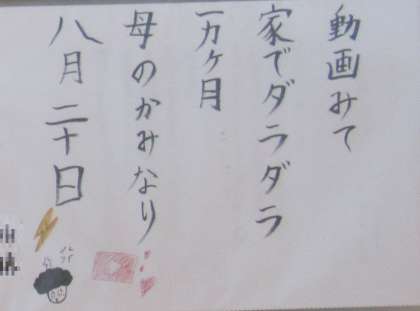 動画みて
家でダラダラ
一カケ月
母のかみなり
八月二十日